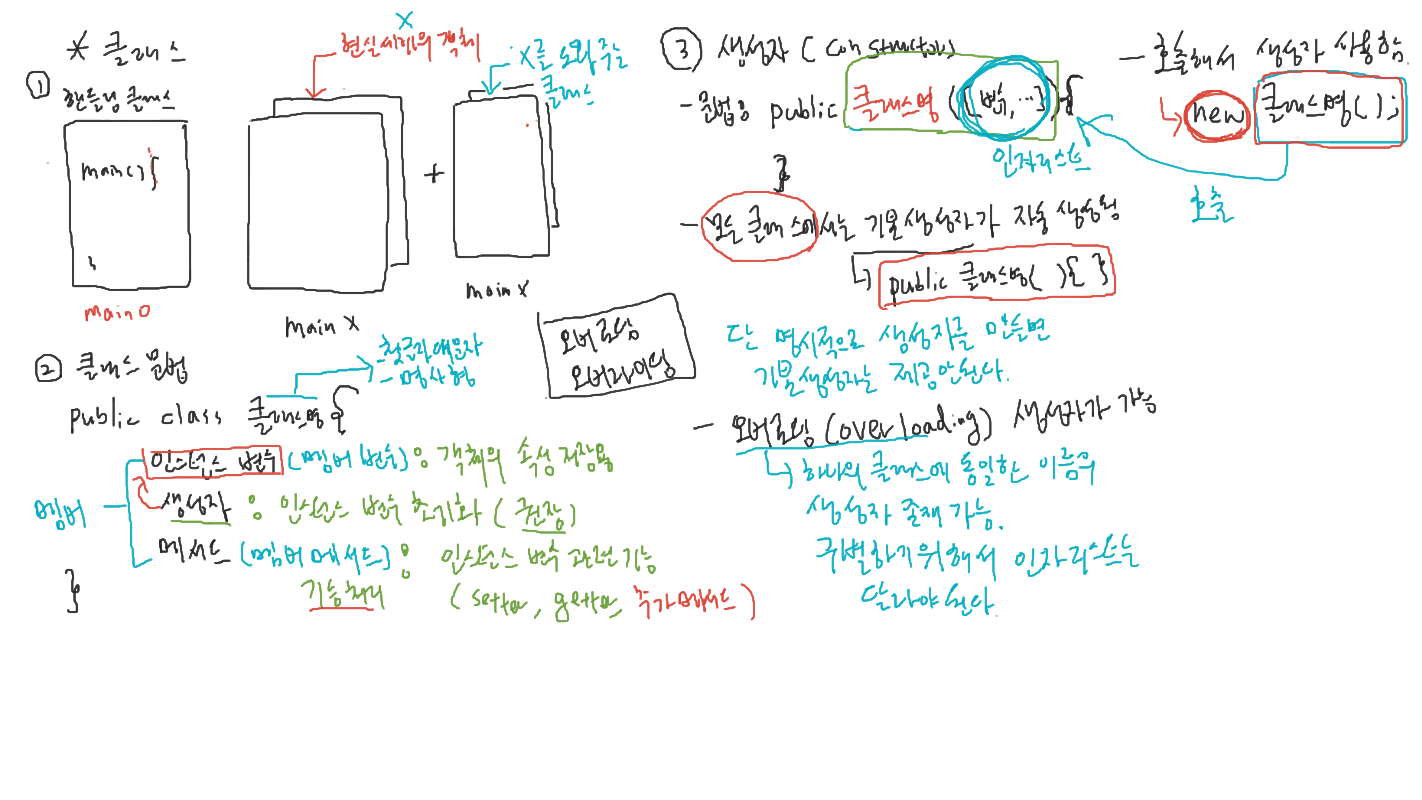 * 클래스
① 핸들링 클래스
main(){
}
main O
X
현실세계의 객체
main X
+
X를 도와주는
클래스
main X
② 클래스 문법
public class 클래스명 {
- 첫글자 대문자
- 명사형
오버로딩
오버라이딩
멤버
인스턴스 변수 (멤버 변수) : 객체의 속성 저장용
생성자 : 인스턴스 변수 초기화 (권장)
메서드 (멤버 메서드) : 인스턴스 변수 관련 기능
기능처리 (setter, getter, 추가메서드)
}
③ 생성자 (constructor)
- 문법: public 클래스명 ([변수, ...]) {
인자리스트
}
- 호출해서 생성자 사용함.
new 클래스명( );
호출
- 모든 클래스에서는 기본생성자가 자동 생성됨
public 클래스명( ){ }
단 명시적으로 생성자를 만들면
기본생성자는 제공안된다.
- 오버로딩 (overloading) 생성자가 가능
하나의 클래스에 동일한 이름의
생성자 존재 가능.
구별하기위해서 인자리스트는
달라야된다.